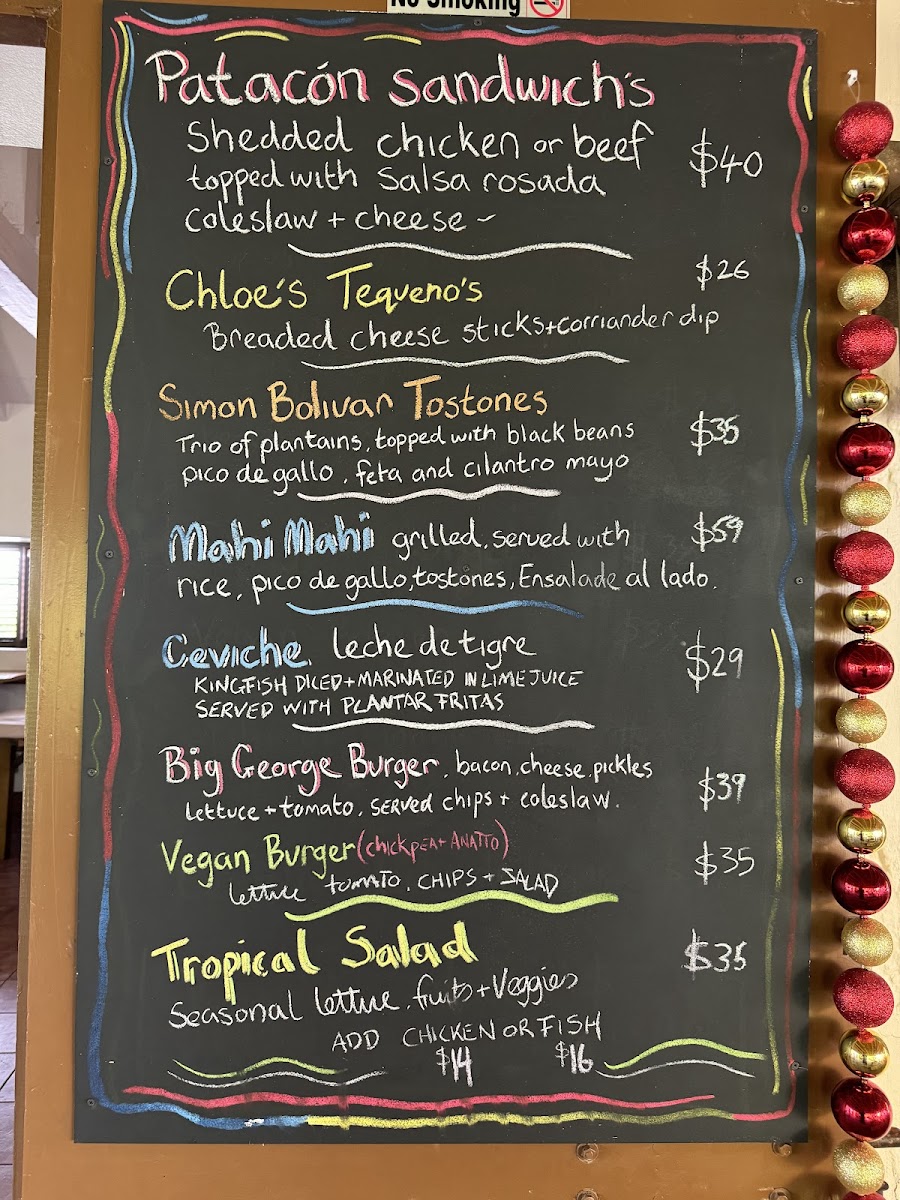 No Smoking
Patacón Sandwich's
Shedded chicken or beef
$40
topped with Salsa rosada
coleslaw + cheese ~
Chloe's Tequeno's
$26
Breaded cheese sticks+corriander dip
Simon Bolivar Tostones
Trio of plantains, topped with black beans
$35
pico de gallo, feta and cilantro mayo
Mahi Mahi grilled, served with
$59
rice, pico de gallo, tostones, Ensalade al lado.
Ceviche. leche de tigre
$29
KINGFISH DICED+MARINATED IN LIME JUICE
SERVED WITH PLANTAR FRITAS
Big George Burger. bacon, cheese, pickles
$39
Lettuce + tomato. SERVED chips + coleslaw.
Vegan Burger (chickpea+ ANATTO)
$35
lettuce tomato. CHIPS + SALAD
Tropical Salad
$35
Seasonal lettuce, fruits + Veggies
ADD CHICKEN OR FISH
$14 $16